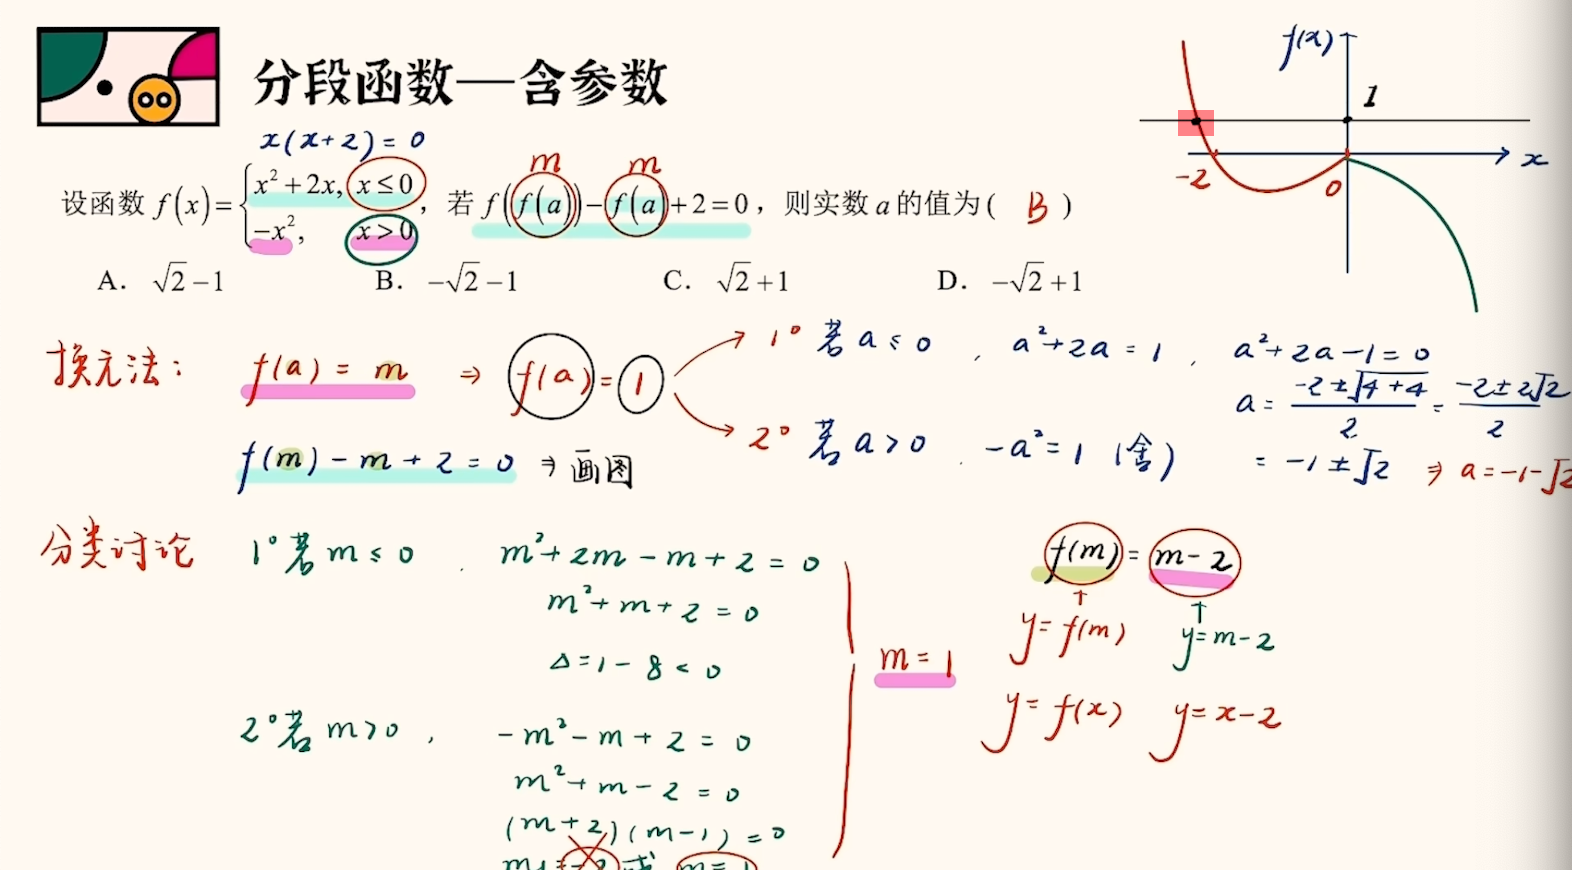 分段函数—含参数
x(x+2)=0
m m
设函数 f(x)={x²+2x, x≤0 -x², x>0, 若 f(f(a))-f(a)+2=0, 则实数 a 的值为( B )
A. √2-1 B. -√2-1 C. √2+1 D. -√2+1
f(x)
1
x
-2
0
换元法: f(a) = m ⇒ f(a)=1
1° 若 a≤0 , a²+2a=1 , a²+2a-1=0
a= (-2±√4+4)/2 = (-2±2√2)/2
2° 若 a>0 . -a²=1 (舍)
= -1±√2 ⇒ a=-1-√2
f(m)-m+2=0 ⇒画图
分类讨论 1°若 m≤0 . m²+2m-m+2=0
m²+m+2=0
Δ=1-8<0
2°若 m>0 , -m²-m+2=0
m²+m-2=0
(m+2)(m-1)=0
m=-2 或 m=1
m=1
f(m)=m-2
↑ ↑
y=f(m) y=m-2
y=f(x) y=x-2